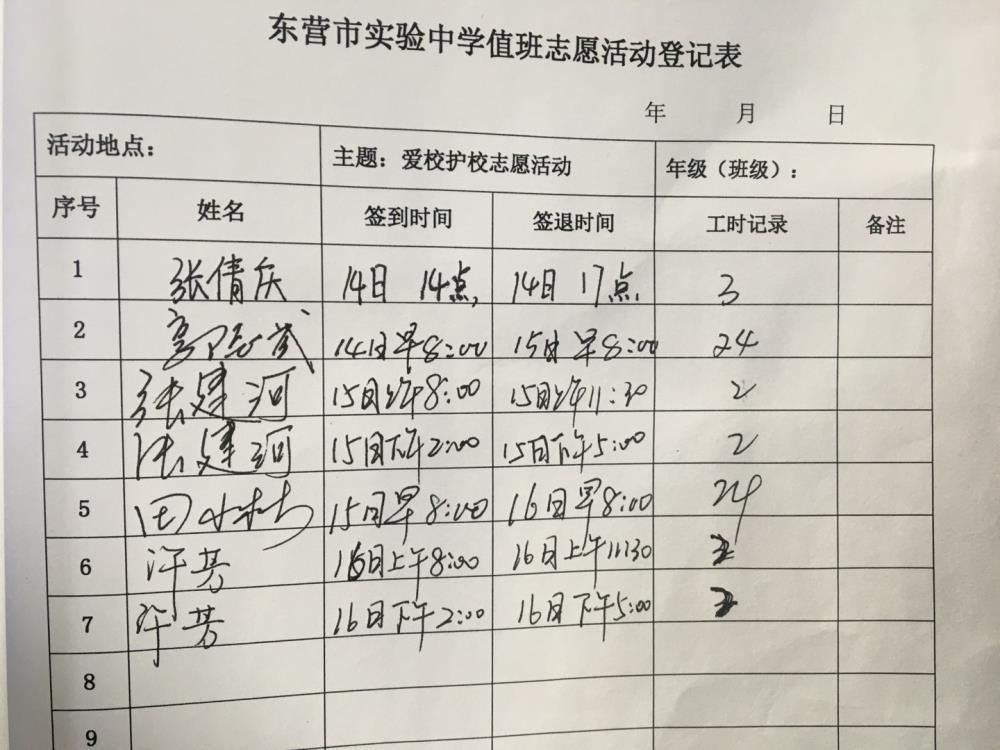 东营市实验中学值班志愿活动登记表
年 月 日
活动地点： 主题：爱校护校志愿活动 年级（班级）：
序号 姓名 签到时间 签退时间 工时记录 备注
1 张倩庆 14日 14点, 14日 17点 3
2 14日早8:00 15日早8:00 24
3 张建河 15日上午8:00 15日上午11:30 2
4 张建河 15日下午2:00 15日下午5:00 2
5 田 15日早8:00 16日早8:00 24
6 许芳 16日上午8:00 16日上午11:30
7 许芳 16日下午2:00 16日下午5:00
8
9